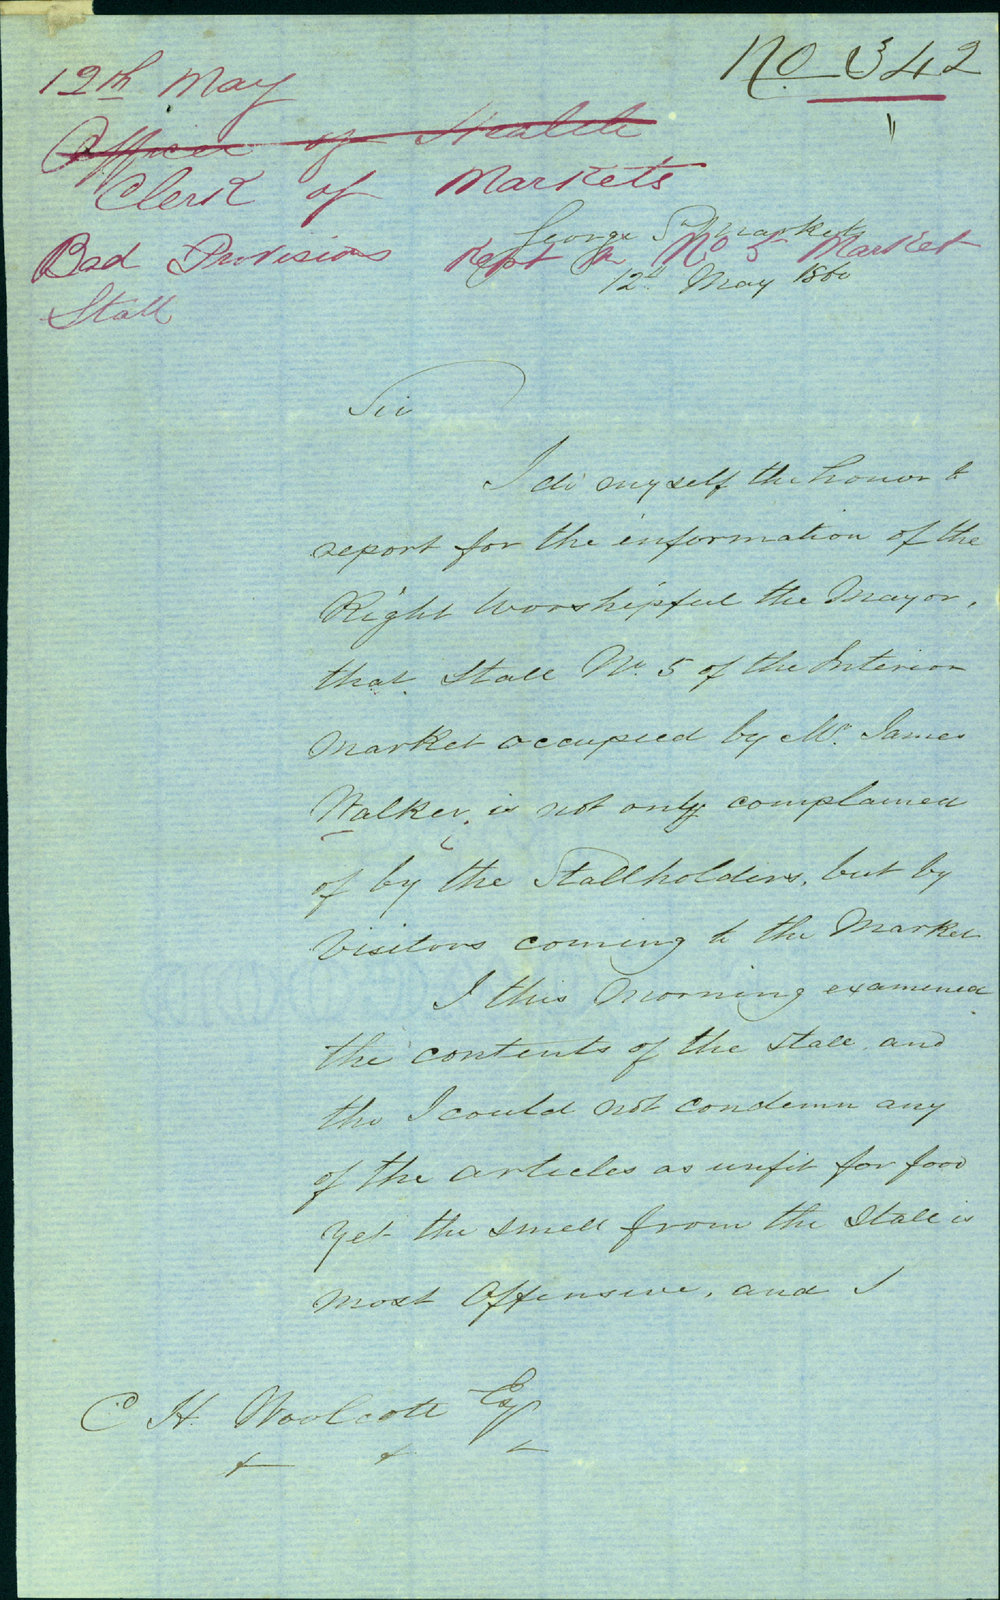 No 342
12th May
Officer of Health
Clerk of Markets
George St Market
Bad Provisions kept in No 5 Market
12th May 1860
Stall
Sir
I do myself the honor to
report for the information of the
Right Worshipful the Mayor,
that Stall No. 5 of the Interior
Market occupied by Mr. James
Walker, is not only complained
of by the Stallholders, but by
Visitors coming to the Market
I this Morning examined
the contents of the Stall and
tho I could not condemn any
of the articles as unfit for food
yet the smell from the Stall is
most Offensive, and I
C H Woolcott Esq